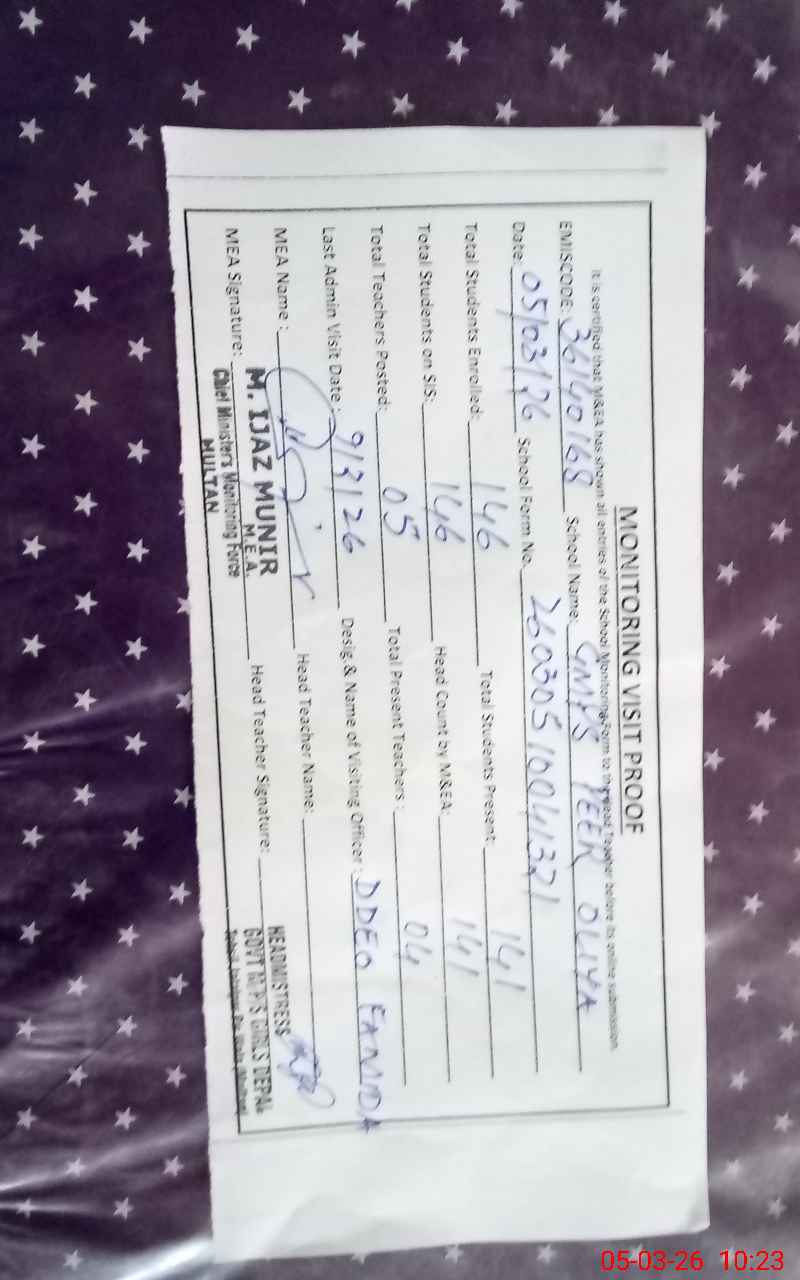 MONITORING VISIT PROOF
It is certified that M&EA has shown all entries of the School Monitoring Form to the Head Teacher before its online submission.
EMISCODE: 36140168 School Name: GMPS PEER OLIYA
Date: 05/03/26 School Form No. 26030510041321
Total Students Enrolled: 146 Total Students Present: 141
Total Students on SIS: 146 Head Count by M&EA: 141
Total Teachers Posted: 05 Total Present Teachers: 04
Last Admin Visit Date: 9/3/26 Desig.& Name of Visiting Officer: DDEO FAMIDA
MEA Name: Head Teacher Name:
MEA Signature: Head Teacher Signature:
M. IJAZ MUNIR
M.E.A.
Chief Minister's Monitoring Force
MULTAN
HEADMISTRESS
GOVT M/P/S GIRLS DEPAL
05-03-26 10:23